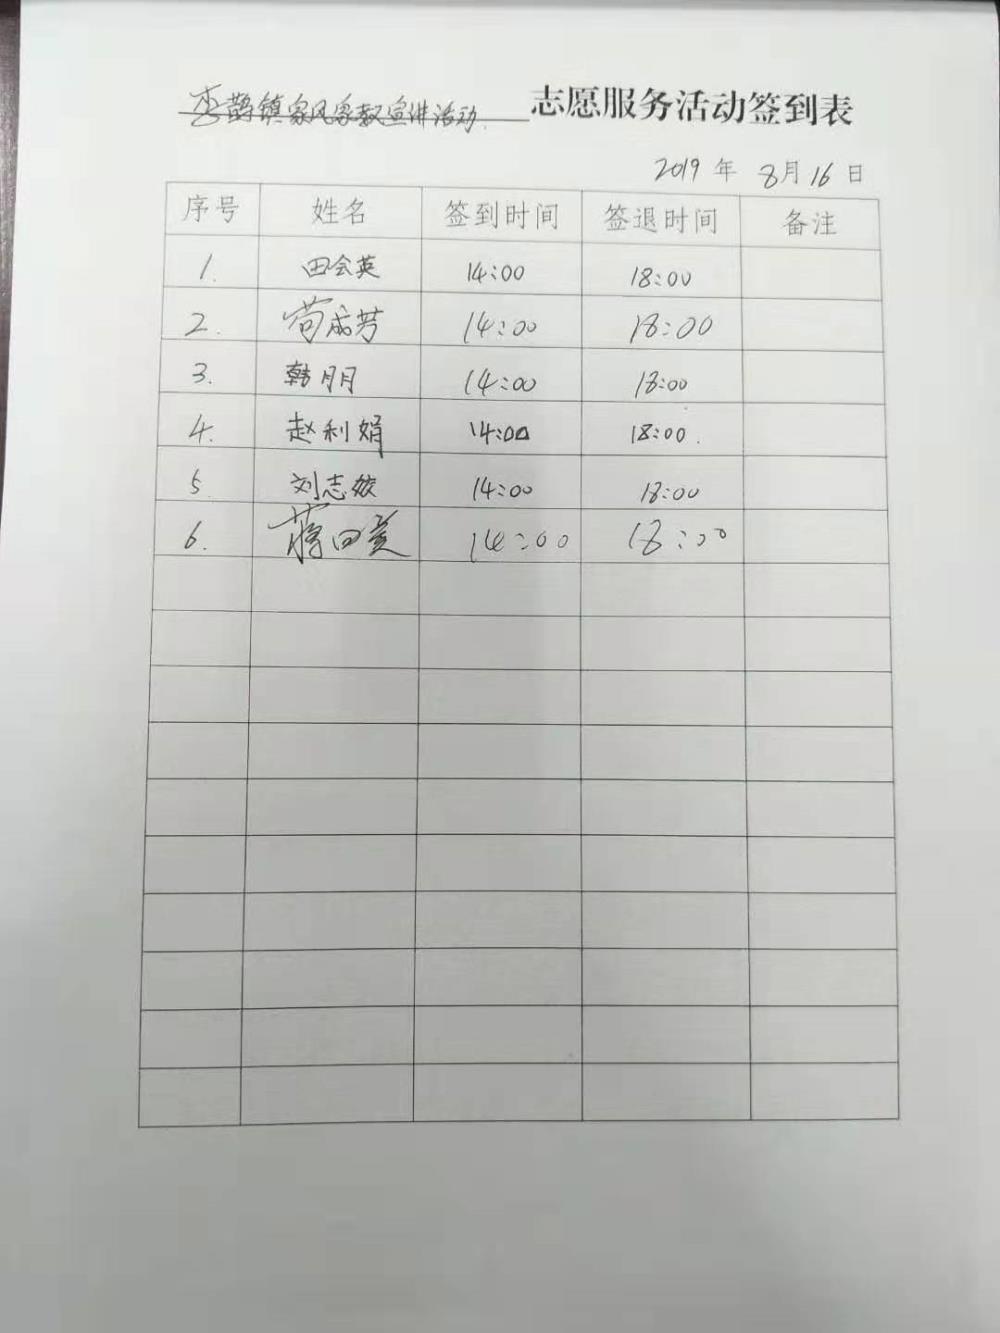 李鹊镇家风家教宣讲活动 志愿服务活动签到表
2019 年 8月16日
序号 姓名 签到时间 签退时间 备注
1. 田会英 14:00 18:00
2. 苟成芳 14:00 18:00
3. 韩月月 14:00 18:00
4. 赵利娟 14:00 18:00.
5 刘志姣 14:00 18:00
6. 14:00 18:00